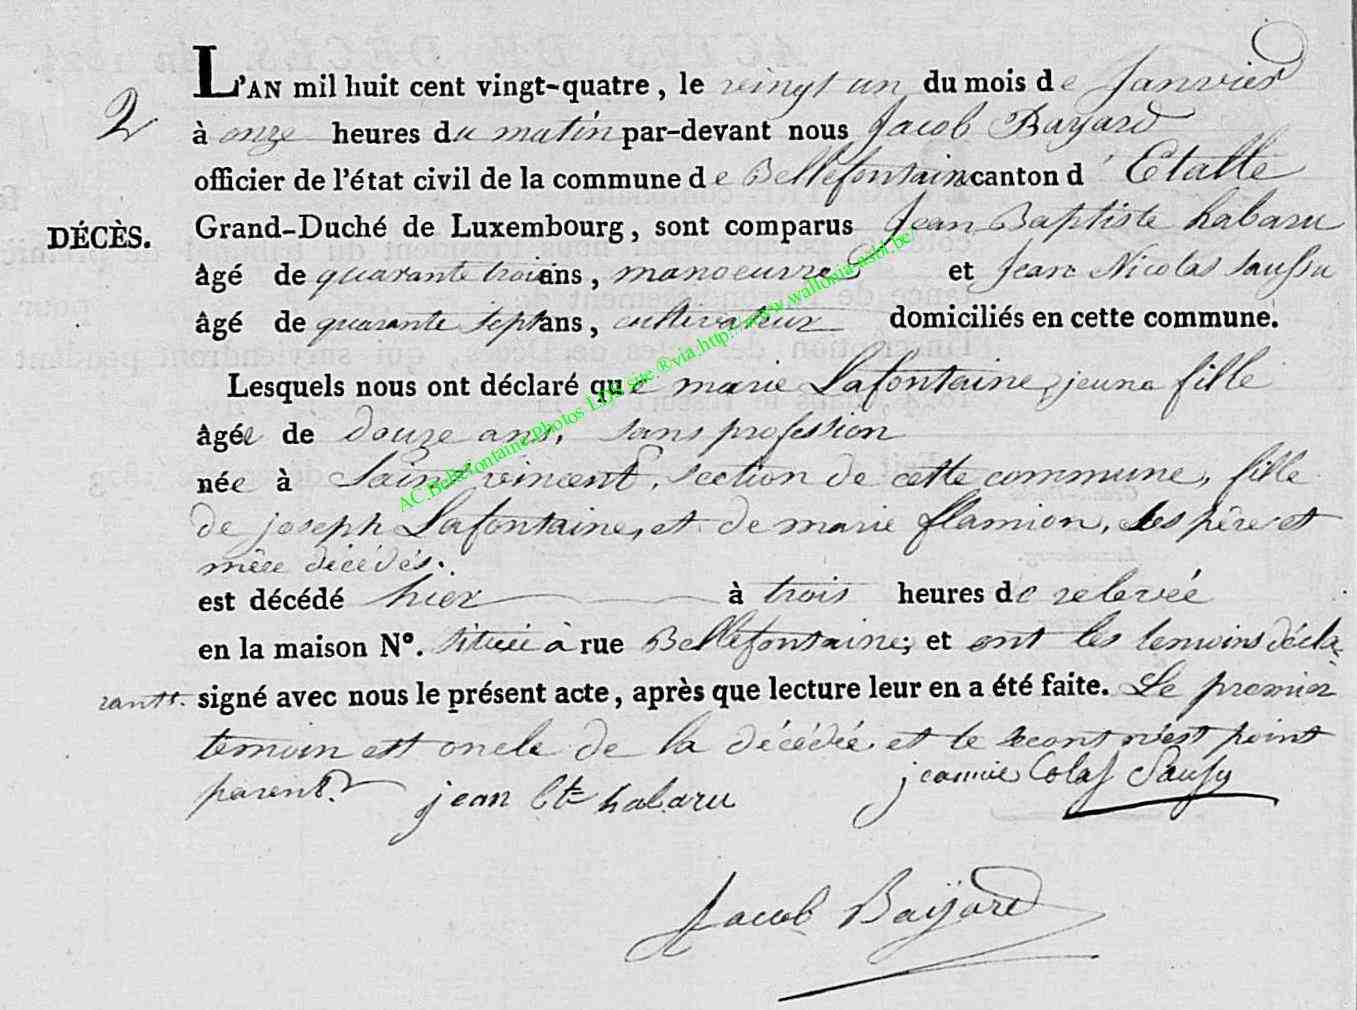 L'AN mil huit cent vingt-quatre, le vingt un du mois de Janvier
2
à onze heures du matin par-devant nous Jacob Bayard
officier de l'état civil de la commune de Bellefontaine canton d'Etalle
DÉCÈS.
Grand-Duché de Luxembourg, sont comparus Jean Baptiste habaru
âgé de quarante trois ans, manoeuvre et Jean Nicolas Saussu
âgé de quarante sept ans, cultivateur domiciliés en cette commune.
Lesquels nous ont déclaré que marie Lafontaine, jeune fille
âgée de douze ans, sans profession
née à Saint vincent, section de cette commune, fille
de joseph Lafontaine, et de marie flamion, ses père et
mère décédés.
est décédé hier à trois heures de relevée
en la maison N°. située à rue Bellefontaine; et ont les temoins décla-
rants. signé avec nous le présent acte, après que lecture leur en a été faite. Le premier
temoin est oncle de la décédée et le second n'est point
parent.
jean bte habaru
Colas Sausu
Jacob Baÿard
AC Bellefontaine Photos LDS site ® via http://www.wallonia-asbl.be/